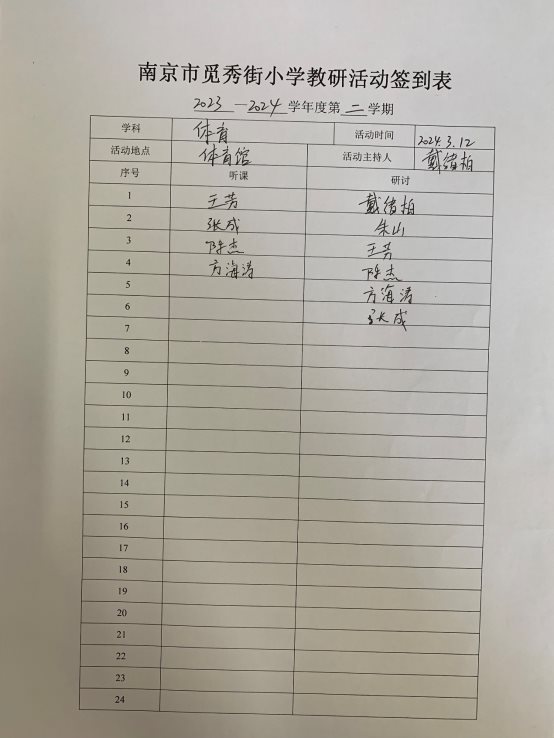 南京市觅秀街小学教研活动签到表
2023—2024学年度第二学期
学科 体育 活动时间 2024.3.12
活动地点 体育馆 活动主持人 戴绪柏
序号 听课 研讨
1 王芳 戴绪柏
2 张成 朱山
3 陈杰 王芳
4 方海涛 陈杰
5 方海涛
6 张成
7
8
9
10
11
12
13
14
15
16
17
18
19
20
21
22
23
24